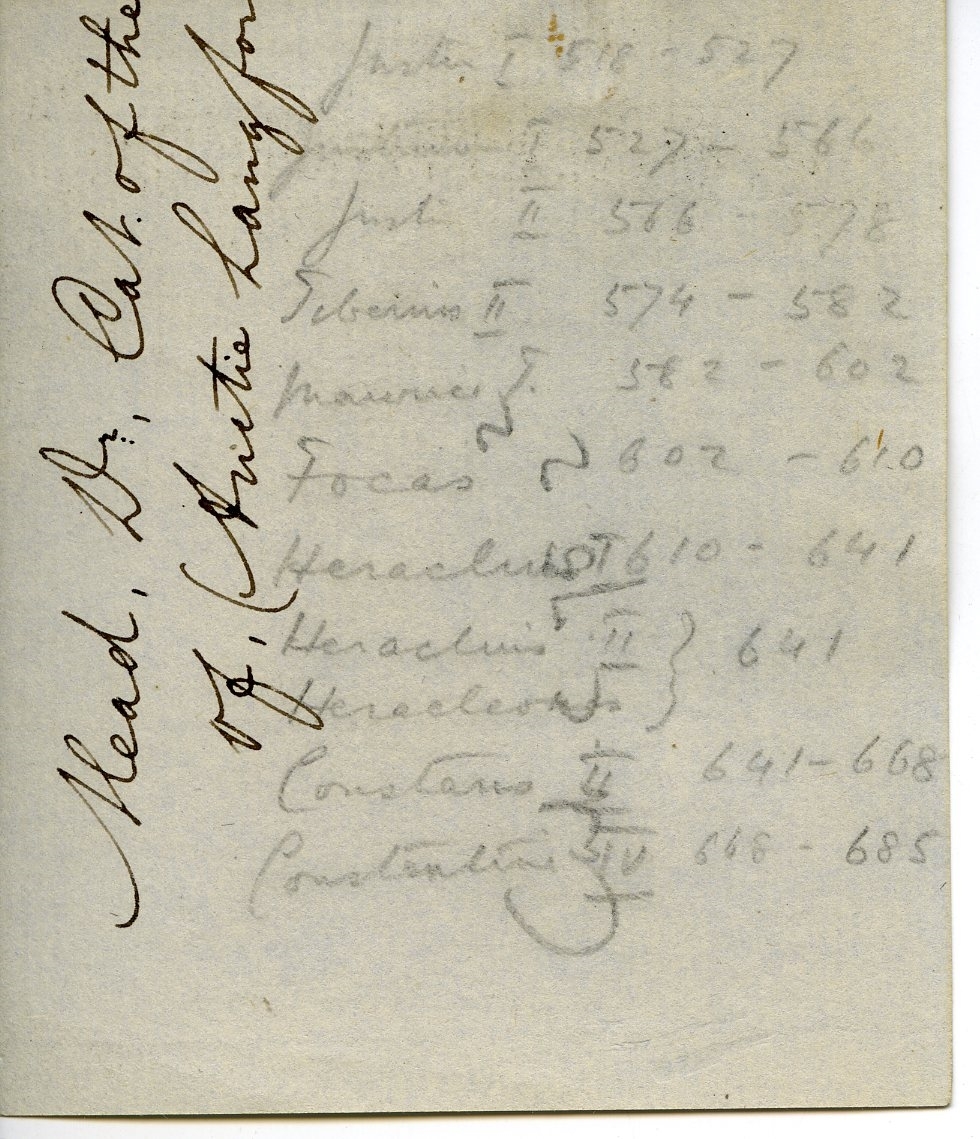 Mead, Dr., Cat. of the
of, (Aultie Langfor
Justin I 518 - 527
Justinian I 527 - 566
Justin II 566 - 578
Tiberius II 574 - 582
Maurice T. 582 - 602
Focas 602 - 610
Heraclius I 610 - 641
Heraclius II } 641
Heracleonas
Constans II 641 - 668
Constantine IV 668 - 685